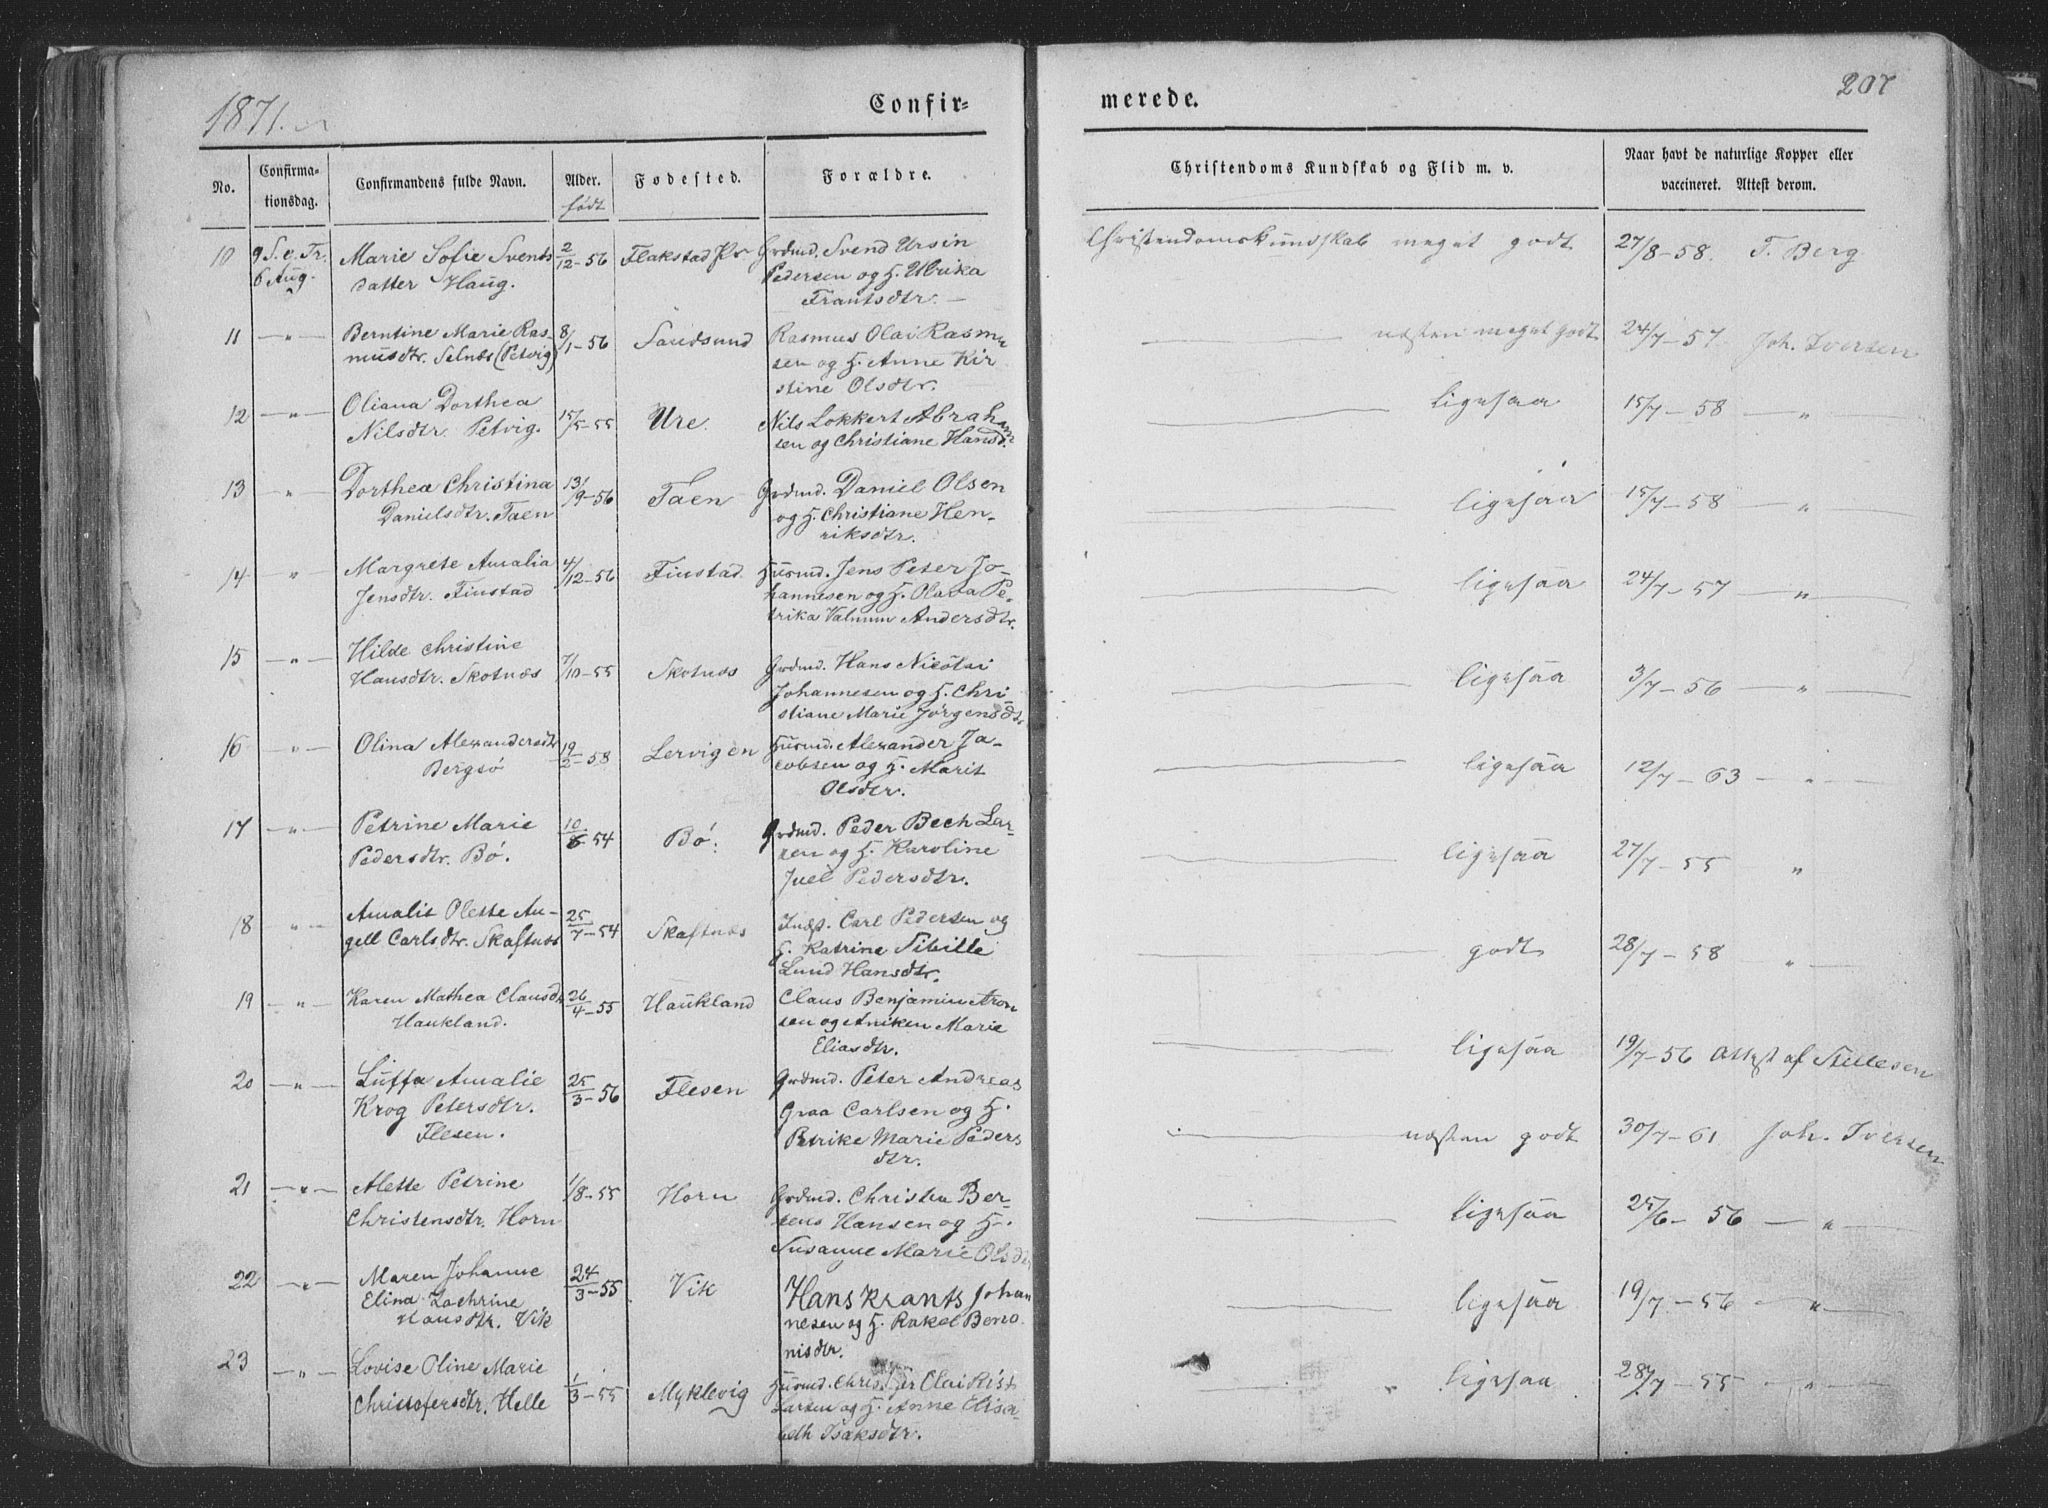 1871.
Confir-
merede.
207
No.
Confirma-
tionsdag.
Confirmandens fulde Navn.
Alder.
født
Fødested.
Forældre.
Christendoms Kundskab og Flid m. v.
Naar havt de naturlige Kopper eller
vaccineret. Attest derom.
10 9 S. e. Tr. Marie Sofie Svends 2/12-56 Flakstad Pr. Grdmd. Svend Ursin Christendomskundskab meget godt 27/8-58. T. Berg
6 Aug. datter Haug. Pedersen og H. Ulrika
Frantsdtr. —
11 — " — Berntine Marie Ras- 8/1-56 Sandsund Rasmus Olai Rasmu næsten meget godt 24/7-57. Joh. Iversen
musdtr. Selnæs (Petvig) sen og H. Anne Kir
stine Olsdtr.
12 — " — Oliana Dorthea 15/5-55 Ure. Nils Lokkert Abraham ligesaa 15/7-58 — " —
Nilsdtr. Petvig. sen og Christiane Hansd.
13 — " — Dorthea Christina 13/9-56 Taen Grdmd. Daniel Olsen ligesaa 15/7-58 — " —
Danielsdtr. Taen og H. Christiane Hen-
riksdtr.
14 " Margrete Amalia 4/12-56 Finstad Husmd. Jens Peter Jo- ligesaa 24/7-57 — " —
Jensdtr. Finstad hannesen og H. Olava Pe-
trika Valnum Andersdtr.
15 — " — Hilde Christine 7/10-55 Skotnæs Grdmd. Hans Nicolai ligesaa 3/7-56 — " —
Hansdtr. Skotnæs Johannesen og H. Chri
stiane Marie Jørgensdtr
16 — " — Olina Alexandersdtr 19/2-58 Lervigen Husmd. Alexander Ja- ligesaa 12/7-63 — " —
Bergsø cobsen og H. Marit
Olsdtr.
17 — " — Petrine Marie 10/8-54 Bø. Grdmd. Peder Bech Lar- ligesaa 27/7-55 "
Pedersdtr. Bø. sen og H. Karoline
Juel Pedersdtr.
18 — " — Amalie Olette An- 25/7-54 Skaftnæs Indst. Carl Pedersen og godt 28/7-58 " —
gell Carlsdtr. Skaftnæs H. Katrine Sibille
Lund Hansdtr.
19 — " — Karen Mathea Clausdtr 26/4-55 Haukland Claus Benjamin Aron ligesaa 19/7-56 Attest af
Haukland. sen og Aniken Marie
Eliasdtr.
20 — " — Luffa Amalie 25/3-56 Flesen Grdmd. Peter Andreas næsten godt 30/7-61 Joh. Iversen
Krog Petersdtr. Graa Carlsen og H.
Flesen. Petrike Marie Peders
dtr.
21 — " — Alette Petrine 1/8-55 Horn Grdmd. Christen Ber- ligesaa 25/6-56 — " —
Christensdtr. Horn Hansen og H.
Susanne Marie Olsdtr
22 — " — Maren Johanne 24/3-55 Vik Hans Krants Johan ligesaa 19/7-56 — " —
Elina Zachrine nesen og H. Rakel Beno
Hansdtr. Vik nisdtr.
23 — " — Lovise Oline Marie 1/3-55 Myklevig Husmd. Christofer Olai Rist ligesaa 28/7-55 — " —
Christofersdtr. Helle Larsen og H. Anne Elisa-
beth Isaksdtr.